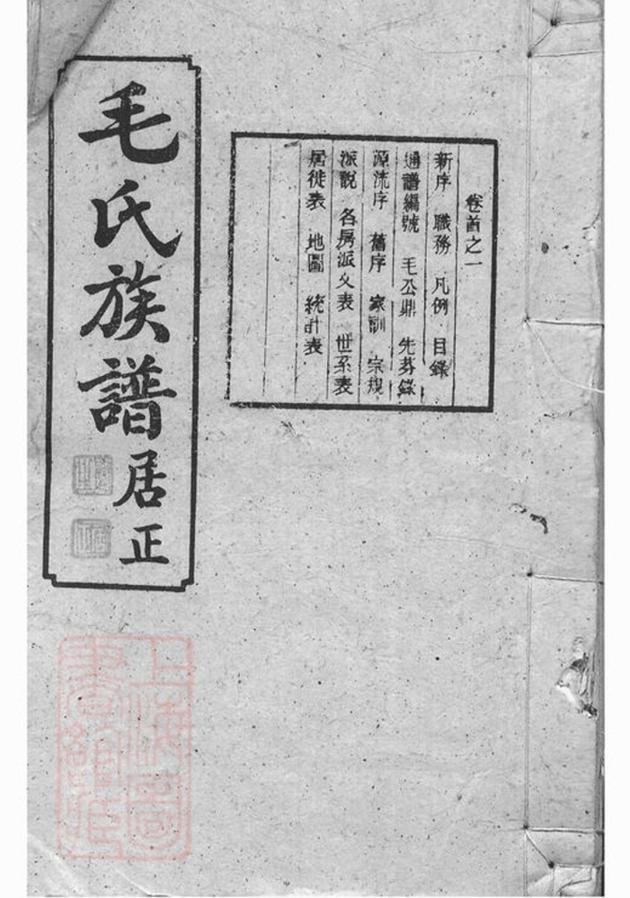 卷首之一
新序 職務 凡例 目錄
通譜編號 毛公鼎 先芬錄
源流序 舊序 家訓 宗規
派說 各房派文表 世系表
居徙表 地圖 統計表
毛氏族譜
居正
上海圖
書館藏